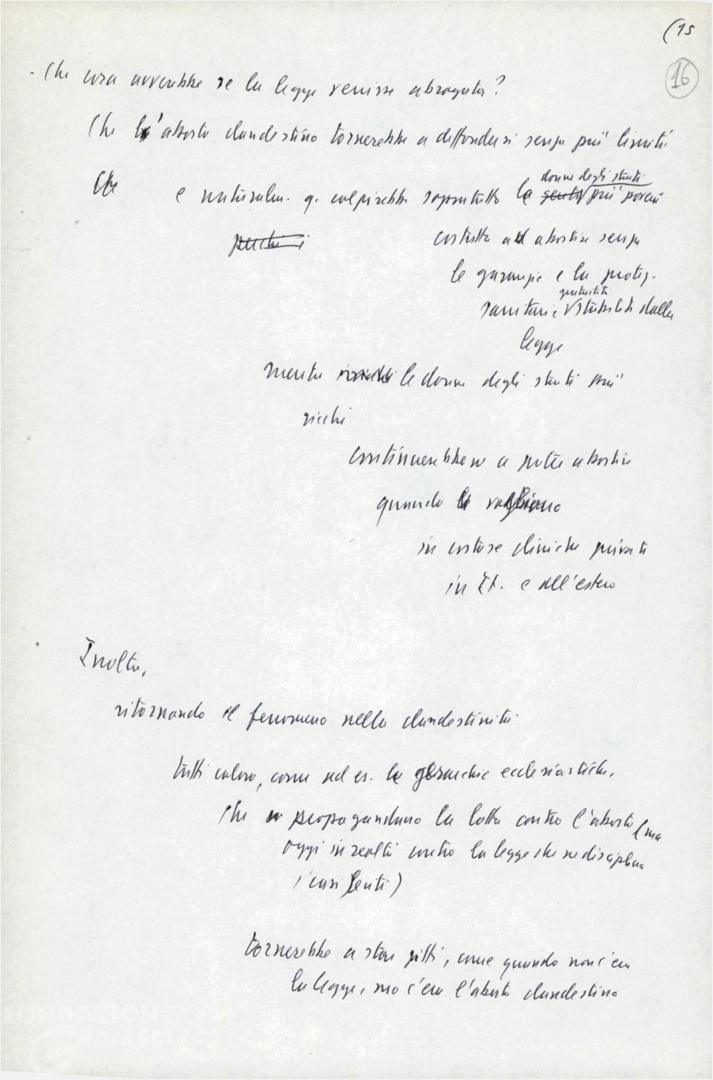 (15
16
- Che cosa avverrebbe se la legge venisse abrogata?
Che l'aborto clandestino tornerebbe a diffondersi senza più limiti
Che e naturalm. q. colpirebbe soprattutto le donne degli strati più poveri
perché
costrette ad abortire senza
le garanzie e la protez.
sanitarie, gratuità stabilite dalla
legge
mentre le donne degli strati più
ricchi
continuerebbero a poter abortire
quando lo vogliono
in costose cliniche private
in It. e all'estero
Inoltre,
ritornando il fenomeno nella clandestinità
tutti coloro, come ad es. le gerarchie ecclesiastiche,
che propagandano la lotta contro l'aborto (ma
oggi in realtà contro la legge che ne disciplina
i casi leciti)
tornerebbe a star zitti, come quando non c'era
la legge, ma c'era l'aborto clandestino